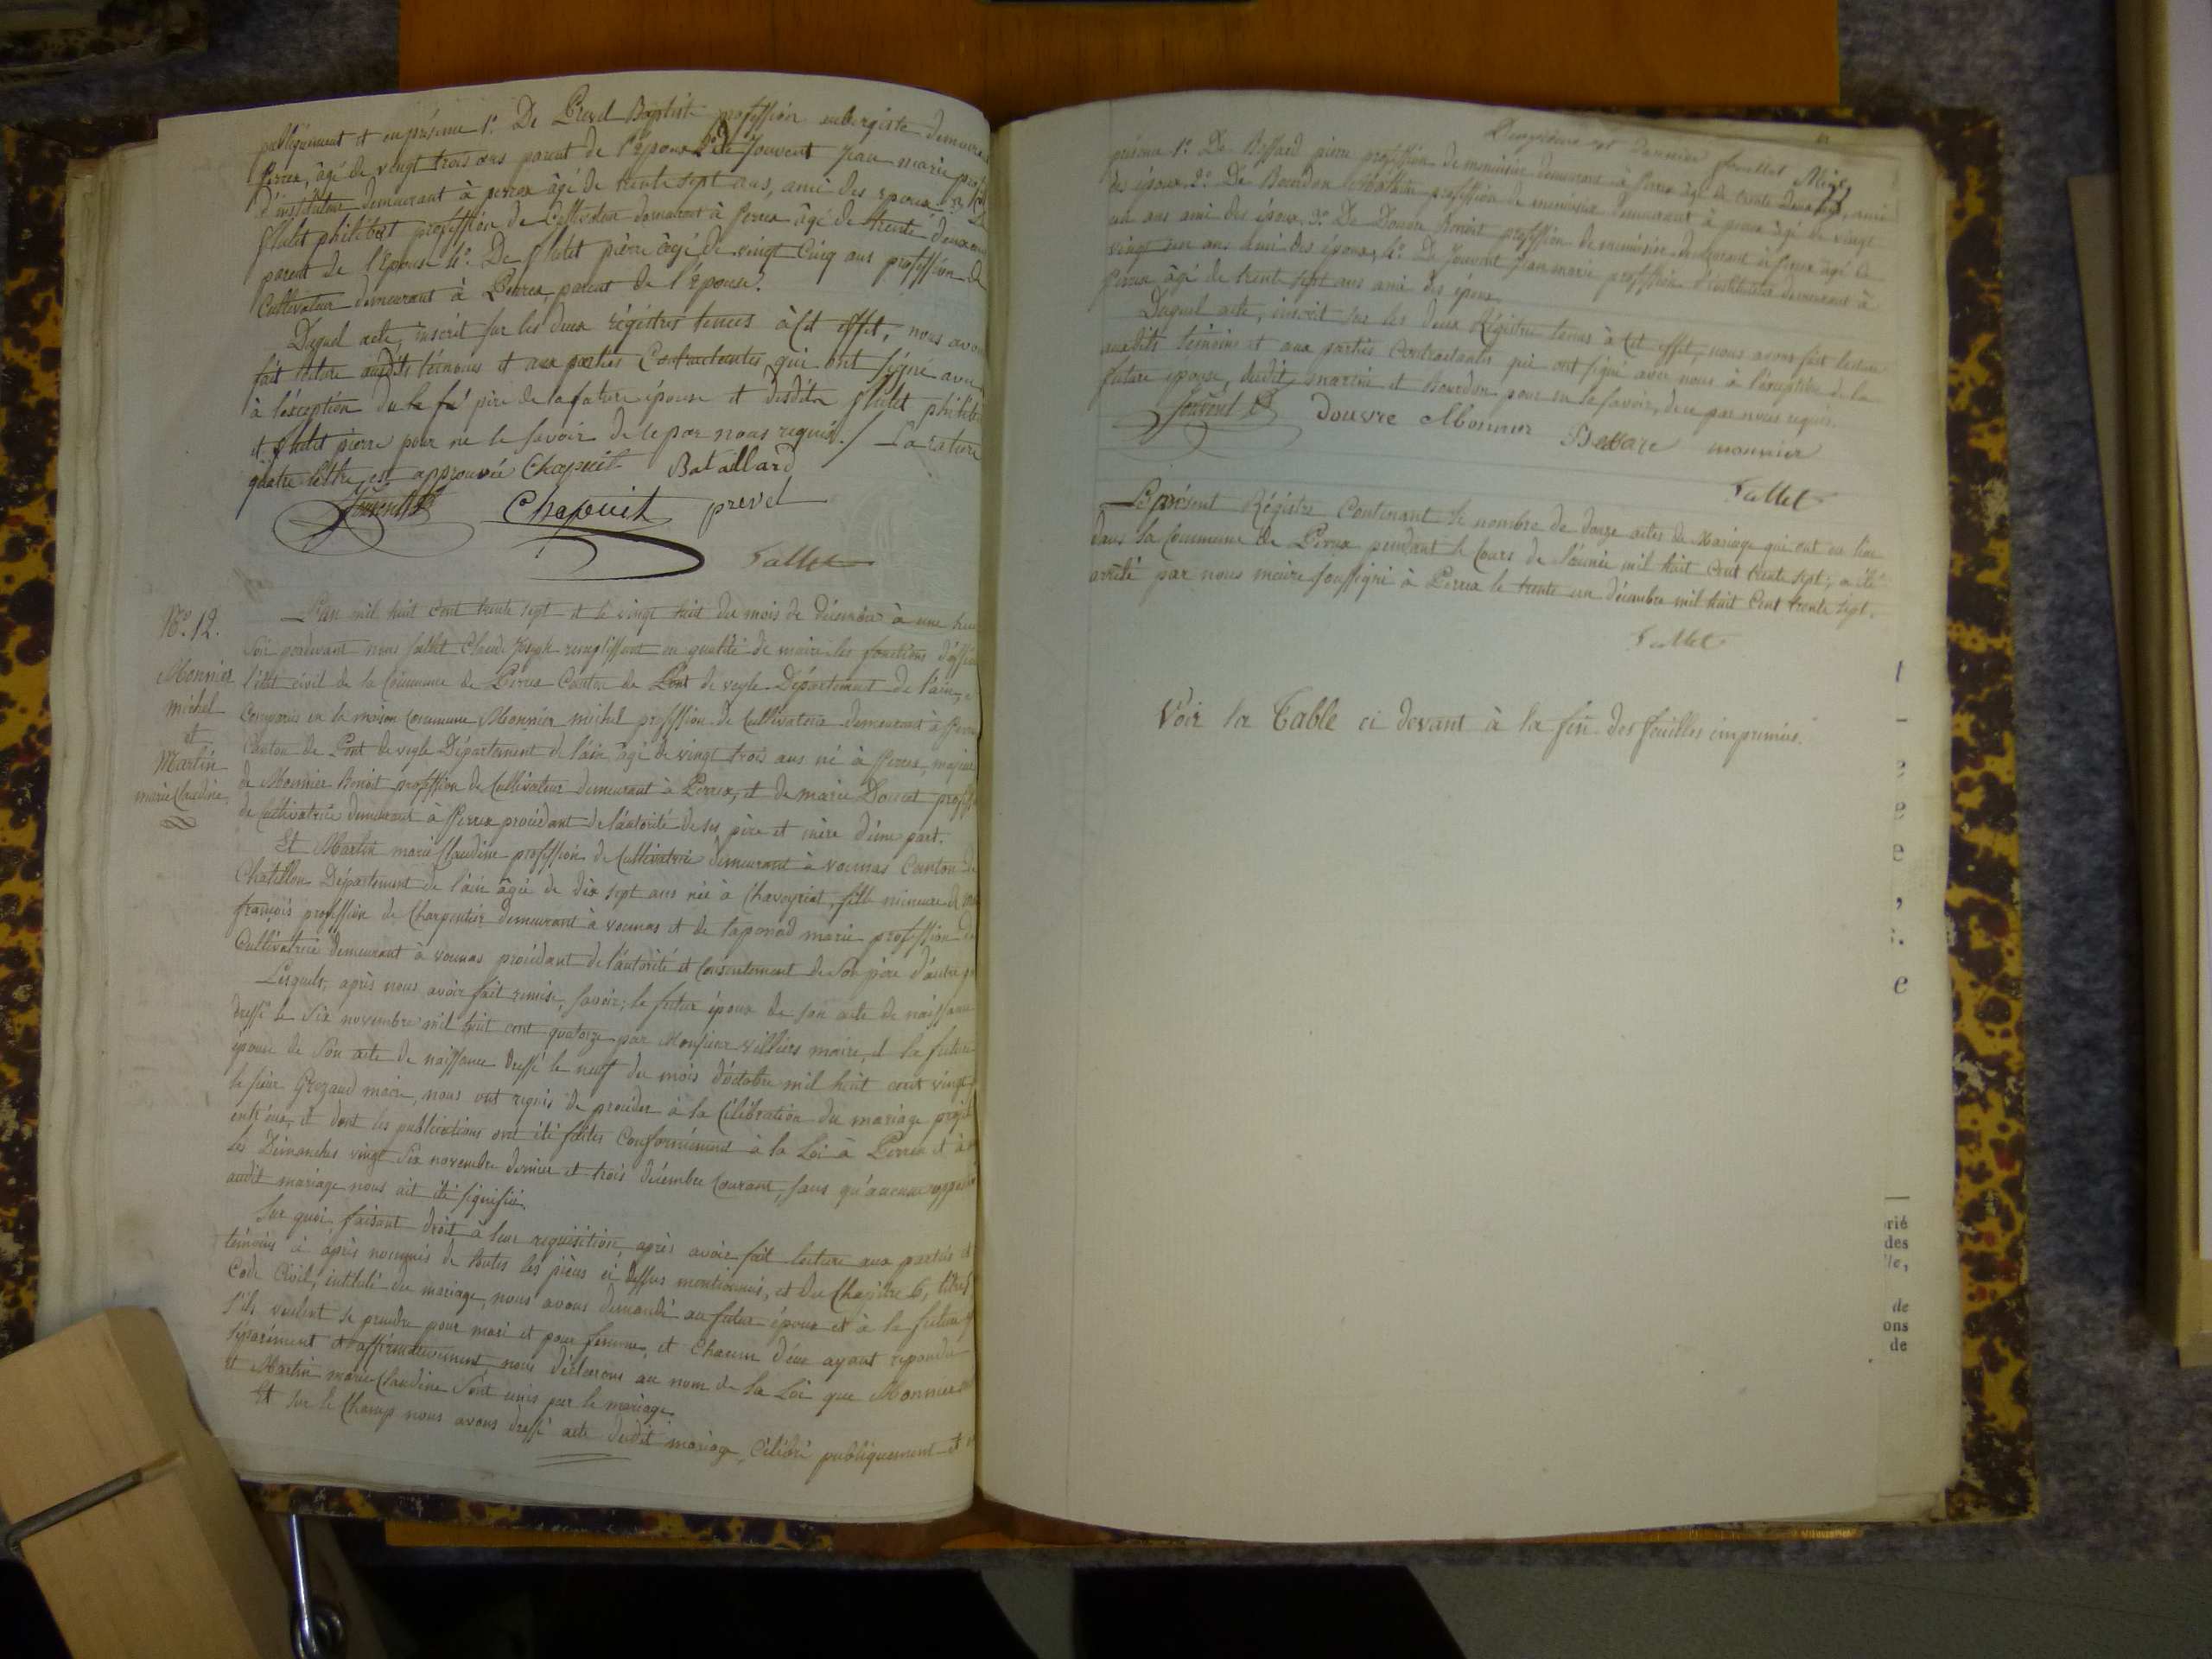 publiquement et en présence 1°. De Prevel Baptiste profession aubergiste demeurant
Perrex, âgé de vingt trois ans parent de l'épouse 2° De Jouvent Jean marie
d'instituteur demeurant à perrex âgé de trente sept ans, ami des époux 3°
philibert profession de Cultivateur demeurant à Perrex âgé de trente deux ans
parent de l'épouse 4°. De pièrre âgé de vingt Cinq ans profession de
Cultivateur demeurant à Perrex, parent de l'épouse.
Duquel acte, inscrit sur les deux régistres tenus à Cet effet, nous avons
fait lecture auxdits témoins et aux parties Contractantes qui ont signé avec
à l'éxception du père de la future épouse et desdits
et pierre pour ne le savoir de ce par nous requis. / La rature
quatre lettre est approuvée Chapuit Bataillard
Jouvent Chapuit prevel
Fallet
N°. 12.
Monnier
michel
et
Martin
marie Claudine
L'an mil huit cent trente sept et le vingt huit du mois de décembre à une heure
soir pardevant nous Fallet Claude Joseph remplissant en qualité de maire les fonctions d'officier
l'état civil de la Commune de Perrex Canton de Pont de veyle Département de l'ain,
Comparus en la maison Commune Monnier michel profession de Cultivateur demeurant à Perrex
Canton de Pont de veyle Département de l'ain âgé de vingt trois ans né à Perrex, majeur
de Monnier Benoit profession de Cultivateur demeurant à Perrex, et de marie Doucet
de Cultivatrice demeurant à Perrex procédant de l'autorité de ses père et mère d'une part.
Et Martin marie Claudine profession de Cultivatrice demeurant à vonnas Canton de
Chatillon Département de l'ain âgée de dix sept ans née à Chaveyriat, fille mineure de
françois profession de Charpentier demeurant à vonnas et de laponad marie profession de
Cultivatrice demeurant à vonnas procédant de l'autorité et Consentement de son père d'autre
Lesquels, après nous avoir fait remise, savoir; le futur époux de son acte de naissance
dressé le six novembre mil huit cent quatorze par Monsieur Villiers maire, et la future
épouse de son acte de naissance dressé le neuf du mois d'octobre mil huit cent vingt
le sieur Grezaud maire, nous ont requis de procéder à la Célébration du mariage projeté
entr'eux, et dont les publications ont été faites Conformément à la Loi à Perrex et à
les Dimanches vingt six novembre dernier et trois décembre Courant, sans qu'aucune
audit mariage nous ait été signifiée.
Sur quoi, faisant droit à leur requisition, après avoir fait lecture aux parties et
témoins ci après nommés de toutes les pièces ci dessus mentionnées, et du Chapitre 6, titre
Code Civil, intitulé du mariage, nous avons demandé au futur époux et à la future
s'ils veulent se prendre pour mari et pour femme, et Chacun d'eux ayant répondu
séparément et affirmativement, nous déclarons au nom de la Loi que Monnier
et Martin marie Claudine sont unis par le mariage.
Et sur le Champ nous avons dressé acte dudit mariage, Célébré publiquement et
Deuxième et dernier feuillet
présence 1°. De Bessard pierre profession de menuisier demeurant à Perrex âgé de trente deux ans, ami
des époux. 2°. De Bourdon profession de menuisier demeurant à perrex âgé de vingt
un ans ami des époux, 3°. De Douvre Benoit profession de menuisier demeurant à Perrex âgé de
vingt un ans ami des époux, 4°. De Jouvent Jean marie profession d'instituteur demeurant à
Perrex âgé de trente sept ans ami des époux.
Duquel acte, inscrit sur les deux Régistres tenus à Cet effet, nous avons fait lecture
auxdits témoins et aux parties Contractantes qui ont signé avec nous à l'éxception de la
future épouse, desdits martin et Bourdon pour ne le savoir, de ce par nous requis.
Jouvent Douvre Monnier Bessare monnier
Fallet
Le présent Régistre Contenant le nombre de douze actes de Mariage qui ont eu lieu
dans la Commune de Perrex pendant le Cours de l'année mil huit Cent trente sept, a été
arrêté par nous maire soussigné à Perrex le trente un décembre mil huit Cent trente sept.
Fallet
Voir la Table ci devant à la fin des feuilles imprimées.
rié
des
de
ons
de